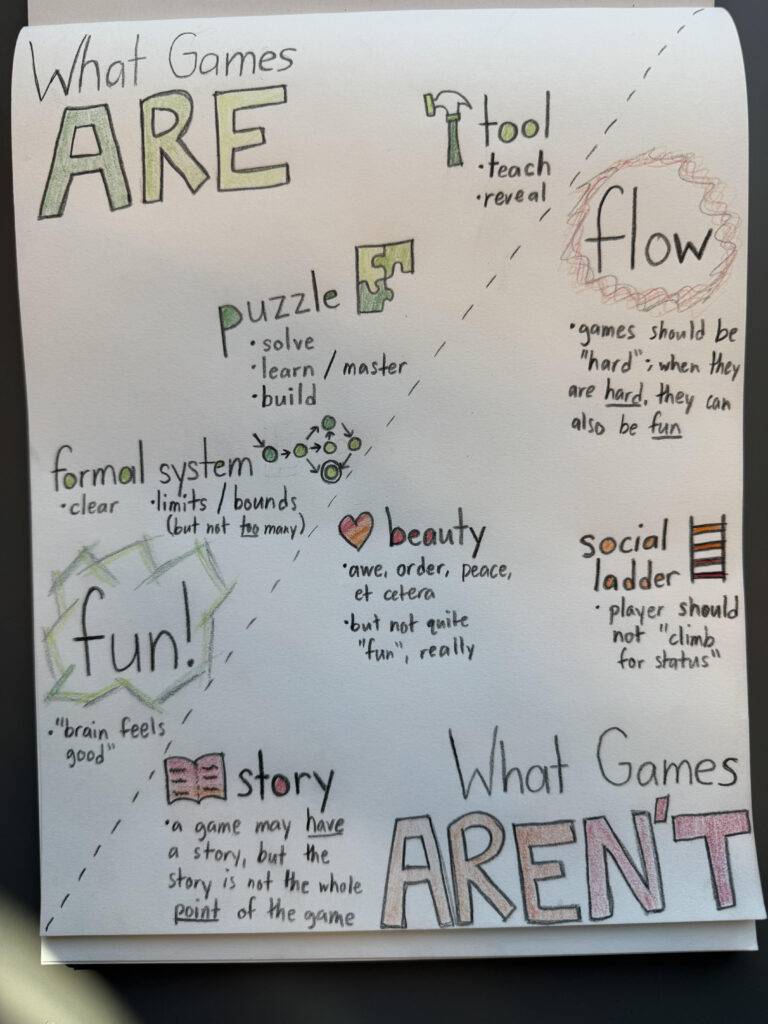 What Games
ARE
tool
•teach
•reveal
flow
•games should be
"hard"; when they
are hard, they can
also be fun
puzzle
•solve
•learn / master
•build
formal system
•clear •limits / bounds
(but not too many)
fun!
•"brain feels
good"
beauty
•awe, order, peace,
et cetera
•but not quite
"fun", really
social
ladder
•player should
not "climb
for status"
story
•a game may have
a story, but the
story is not the whole
point of the game
What Games
AREN'T